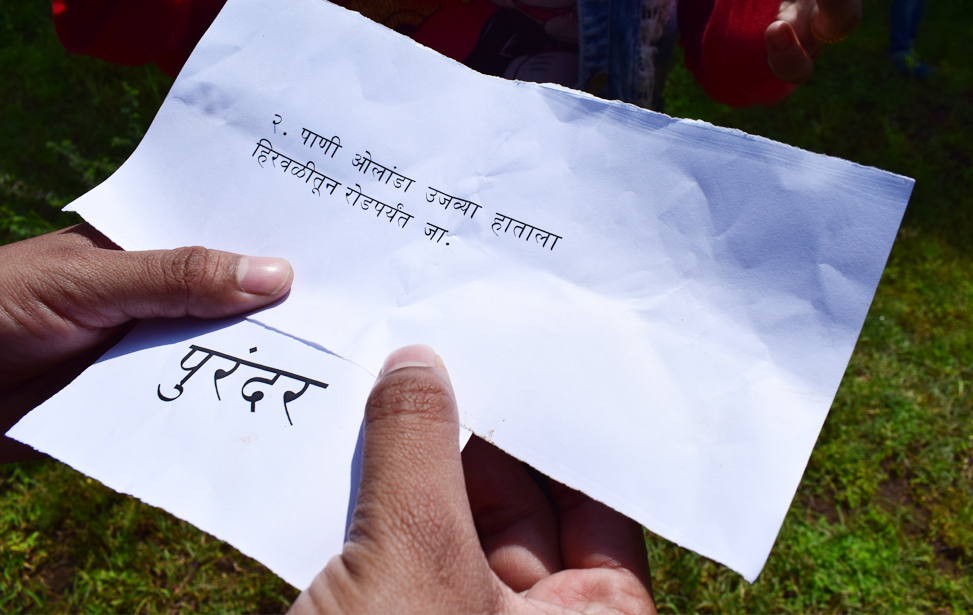 २. पाणी ओलांडा उजव्या हाताला
हिरवळीतून रोडपर्यंत जा.
पुरंदर